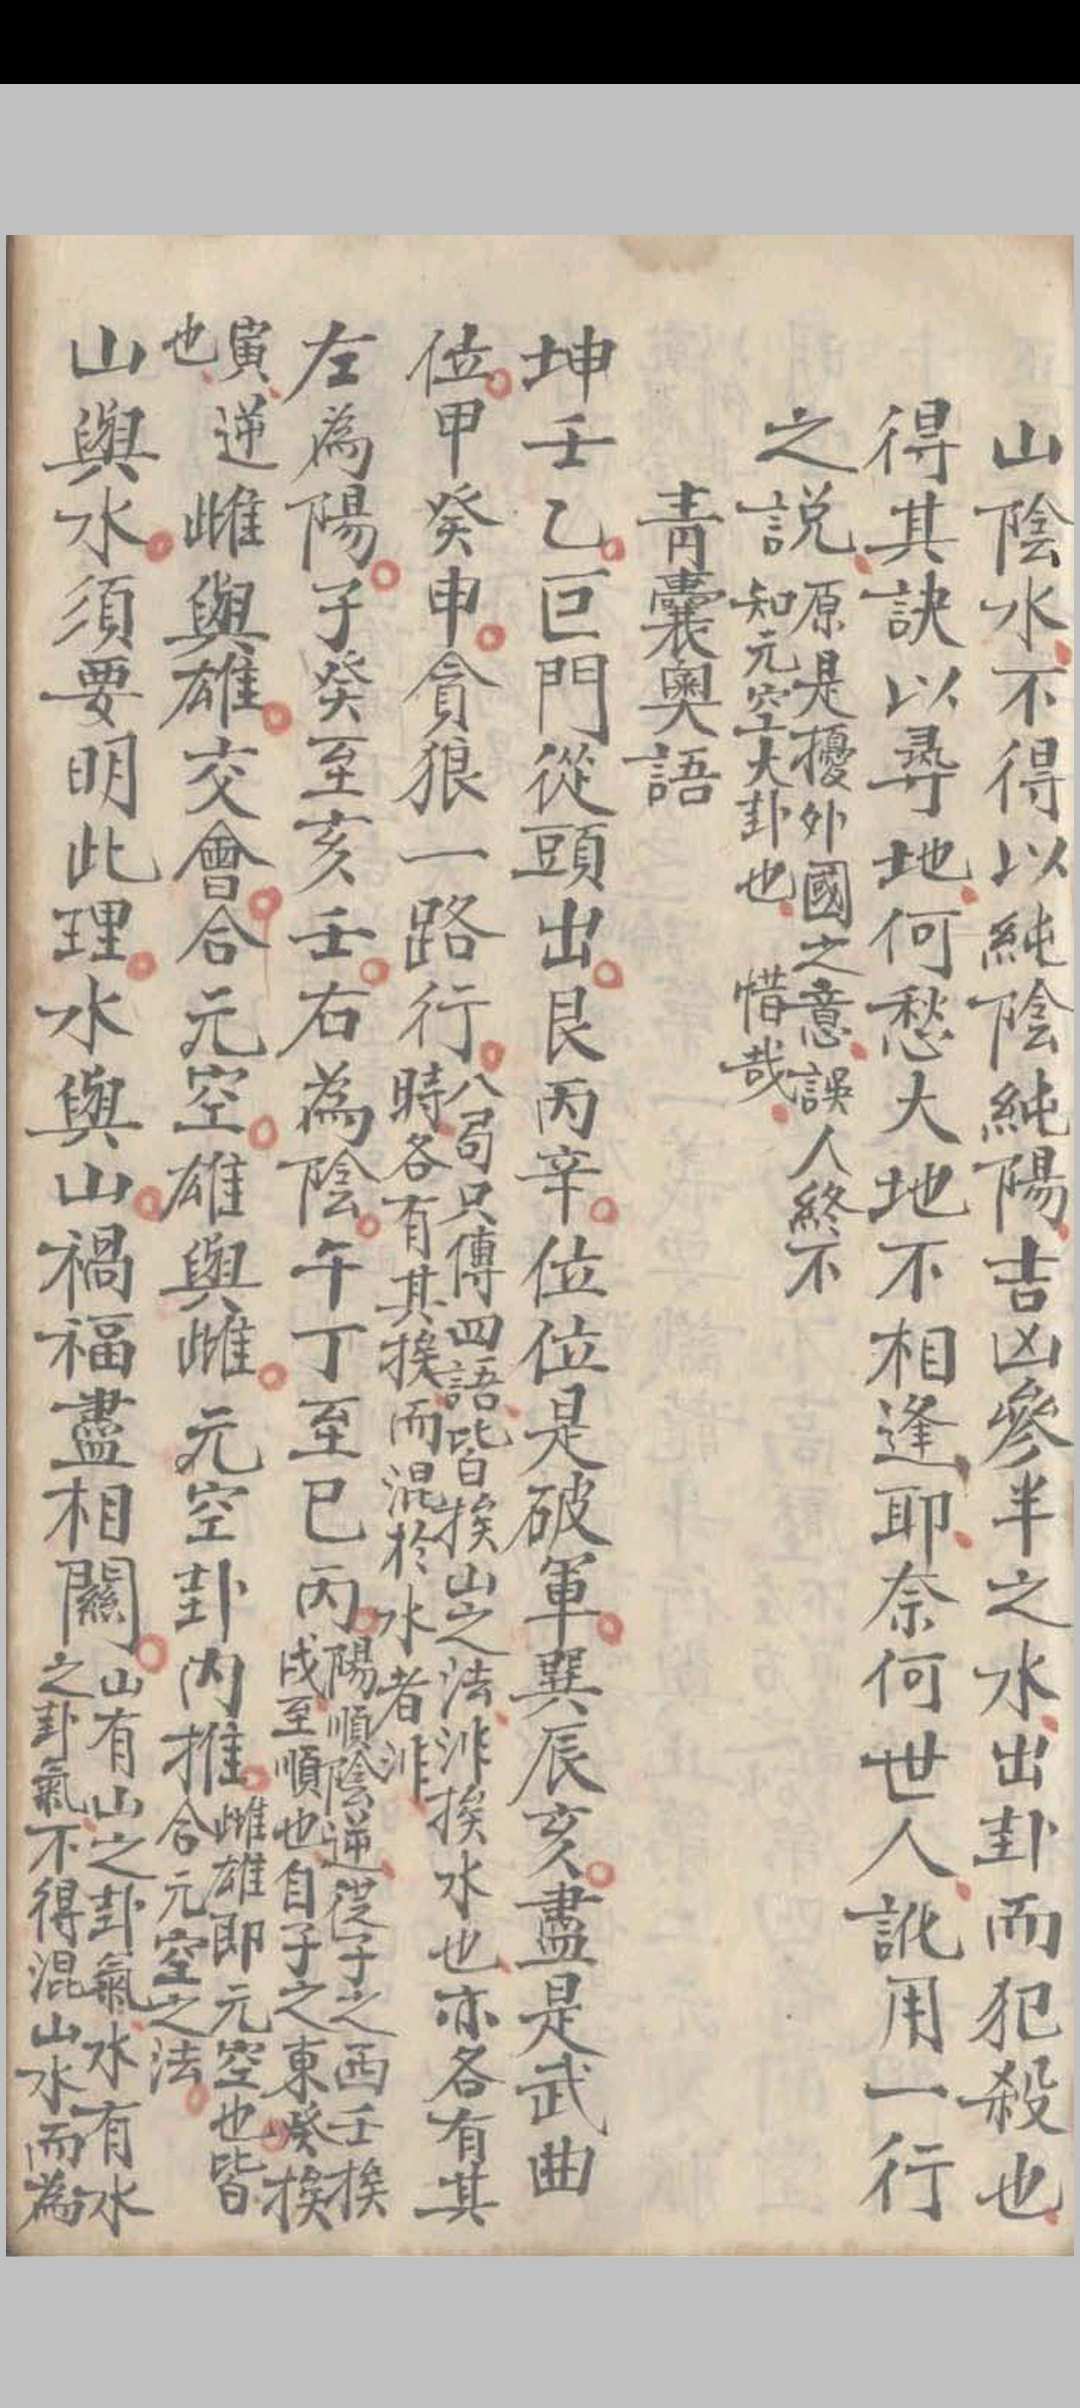 山陰水不得以純陰純陽吉凶參半之水出卦而犯殺也
得其訣以尋地何愁大地不相逢耶奈何世人訛用一行
之説原是擾外國之意誤人終不
知元空大卦也惜哉
青囊奧語
坤壬乙巨門從頭出艮丙辛位位是破軍巽辰亥盡是武曲
位甲癸申貪狼一路行八局只傳四語皆挨山之法非挨水也亦各有其
時各有其挨而混於水者非
左為陽子癸至亥壬右為陰午丁至巳丙陽順陰逆從子之西壬挨
戌至順也自子之東癸挨
寅逆
也
雌與雄交會合元空雄與雌元空卦內推雌雄即元空也皆
合元空之法
山與水須要明此理水與山禍福盡相關山有山之卦氣水有水
之卦氣不得混山水而為